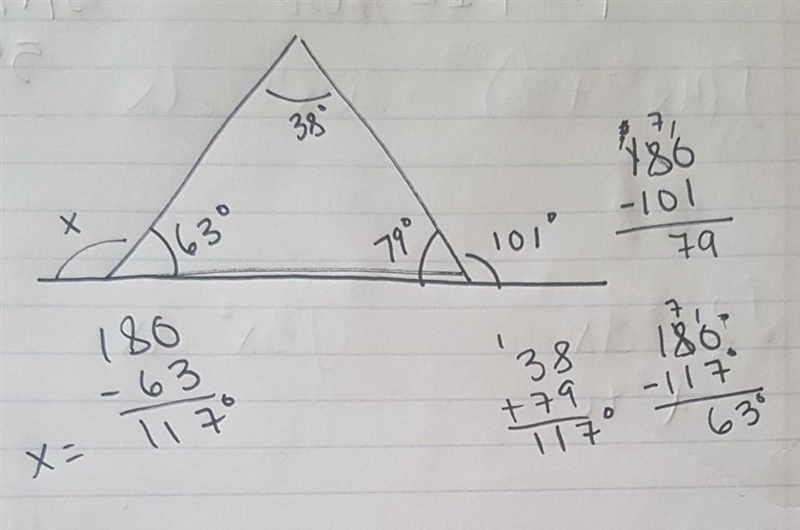 38°
x
63°
79°
101°
7 1
180
-101
79
180
- 63
117°
x =
1
38
+79
117°
7 1
180°
-117°
63°